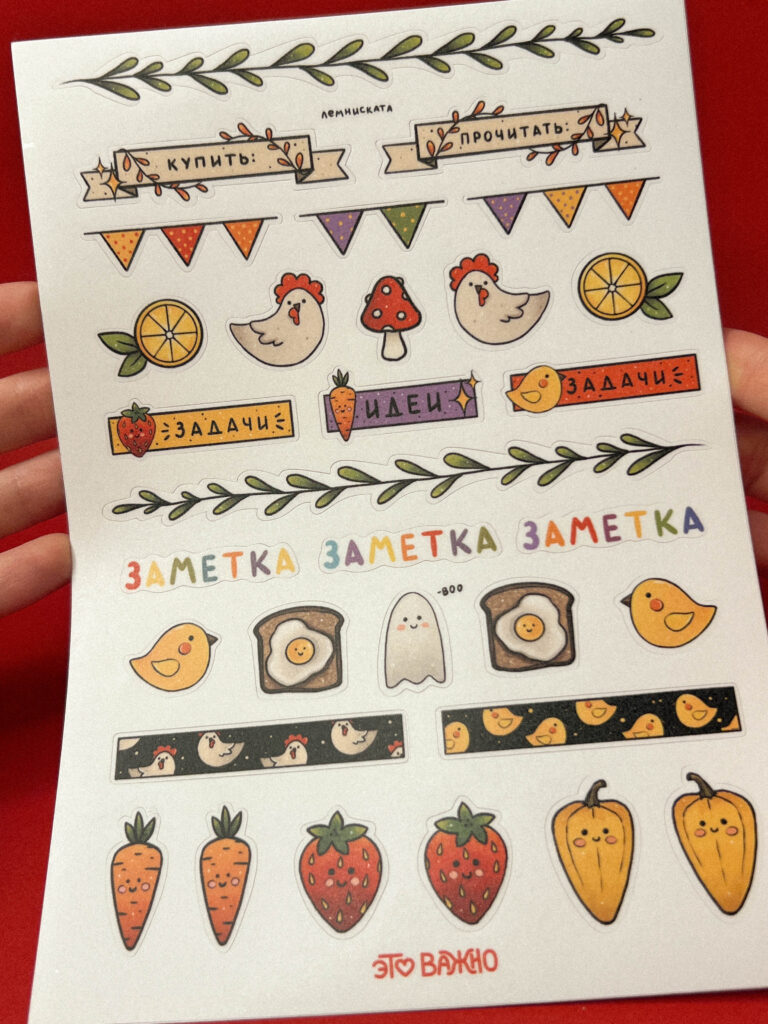 лемниската
КУПИТЬ:
ПРОЧИТАТЬ:
ЗАДАЧИ
ИДЕИ
ЗАДАЧИ
ЗАМЕТКА
ЗАМЕТКА
ЗАМЕТКА
-BOO
ЭТО ВАЖНО